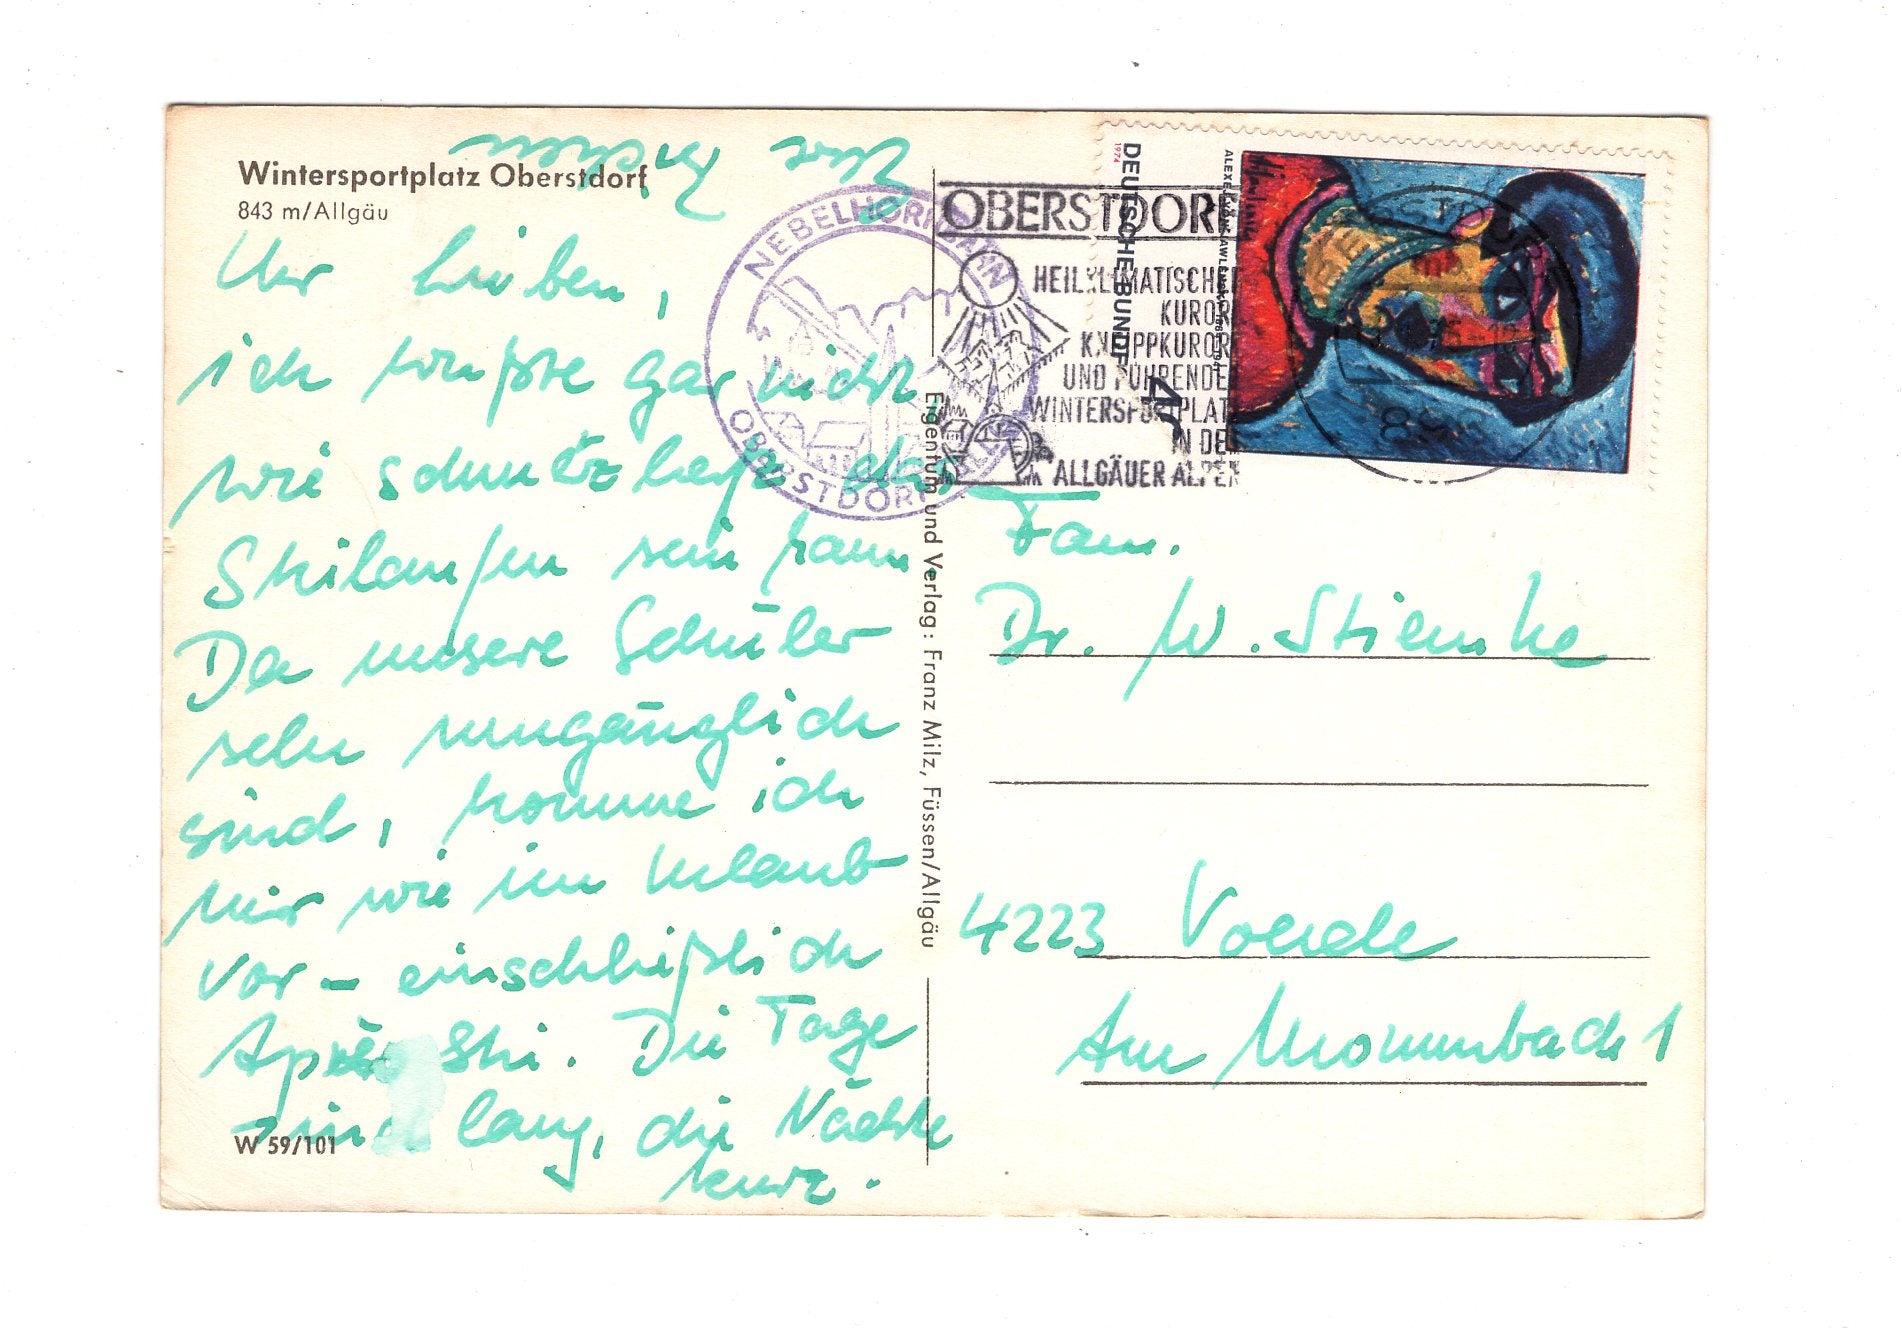 Wintersportplatz Oberstdorf
843 m/Allgäu
Ihr Lieben,
ich wußte gar nicht,
wie schmerzhaft das
Skilaufen sein kann
Da unsere Schüler
sehr umgänglich
sind, komme ich
mir wie im Urlaub
vor – einschließlich
Après Ski. Die Tage
sind lang, die Nächte
kurz.
W 59/101
Eigentum und Verlag: Franz Milz, Füssen/Allgäu
NEBELHORNBAHN
OBERSTDORF
OBERSTDORF
HEILKLIMATISCHER
KURORT
KNEIPPKURORT
UND FÜHRENDER
WINTERSPORTPLATZ
IN DEN
ALLGÄUER ALPEN
DEUTSCHE BUNDESPOST
1974
898
Fam.
Dr. W. Stiemke
4223 Voerde
Am Mommbach 1